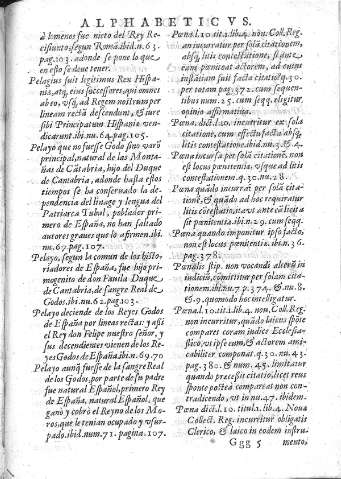 ALPHABETICVS.
à lomenos fue nieto del Rey Re
cisunto, segun Roma. ibid. n. 63.
pag. 103. adonde se pone lo que
en esto se deue tener.
Pelagius fuit legitimus Rex Hispa
niæ, atq́, eius successores, qui omnes
ab eo, vsq́, ad Regem nostrum per
lineam rectã descendunt, & iure
sibi Principatum Hispaniæ ven-
dicarunt. ibi. nu. 64. pag. 105.
Pelayo que no fuesse Godo sino varõ
principal, natural de las Monta-
ñas de Cãtabria, hijo del Duque
de Cantabria, adonde hasta estos
tiempos se ha conseruado la de-
pendencia del linage y lengua del
Patriarca Tubal, poblador prime-
ro de España, no han faltado
autores graues que lo afirmen. ibi.
nu. 67. pag. 107.
Pelayo, segun la comun de los histo-
riadores de España, fue hijo pri-
mogenito de don Fauila Duque
de Cantabria, de sangre Real de
Godos. ibi. nu. 62. pag. 103.
Pelayo deciende de los Reyes Godos
de España por lineas rectas: y assi
el Rey don Felipe nuestro señor, y
sus descendientes vienen de los Re-
yes Godos de España. ibi. n. 69. 70
Pelayo aunq̃ fuesse de la sangre Real
de los Godos, por parte de su padre
fue natural Español, primero Rey
de España, natural Español, que
ganò y cobrò el Reyno de los Mo-
ros, que le tenian ocupado y vsur-
pado. ibid. num. 71. pagina. 107.
Pœna l. 10. tit. 1. lib. 4. nou. Coll. Reg.
an incurratur per solã citationem,
absq́, litis contestatione, si quis
eam poniat actorem, ad eum
instãtiam suit facta citatio q. 30.
per totam pag. 372. cum sequen-
tibus num. 25. cum seqq. eligitur,
opinio affirmatiua.
Pœna. dict. l. 10. incurritur ex sola
citatione, cum effectu facta absq́,
litis contestatione. ibid. nu. 3. & 4.
Pœna incursa per solã citationē, non
est locus pœnitentiæ, vsque ad litis
contestationem. q. 30. nu. 28.
Pœna quãdo incurrāt per solã citatio
nē, & quãdo ad hoc requiratur
litis cõtestatio, itavt ante eã licita
sit pœnitentia. ibi. n. 29. cum seqq.
Pœna quando imponitur ipso facto,
non est locus pœnitentiæ. ibi. n. 36.
pag. 378.
Pœnalis stip. non vocandi alterũ in
iudiciũ, committitur per solam cita-
tionem. ibi. nu. 7. p. 374. & nu. 8.
& 9. quomodo hoc intelligatur.
Pœna. l. 10. tit. 1. lib. 4. non. Coll. Reg.
non incurritur, quãdo laicus spõte
comparet coram iudice Ecclesia-
stico, vt ipse cum, & actorem ami-
cabiliter componat. q. 30. nu. 43.
pag. 380. & num. 45. limitatur
quando præcessit citatio, licet reus
sponte postea compareat non con-
tradicendo, vt in nu. 47. ibidem.
Pœna dict. l. 10. titul. 1. lib. 4. Noua
Collect. Reg. incurritur obligatis
Clerico, & laico in eodem instru-
Ggg 5 mento,